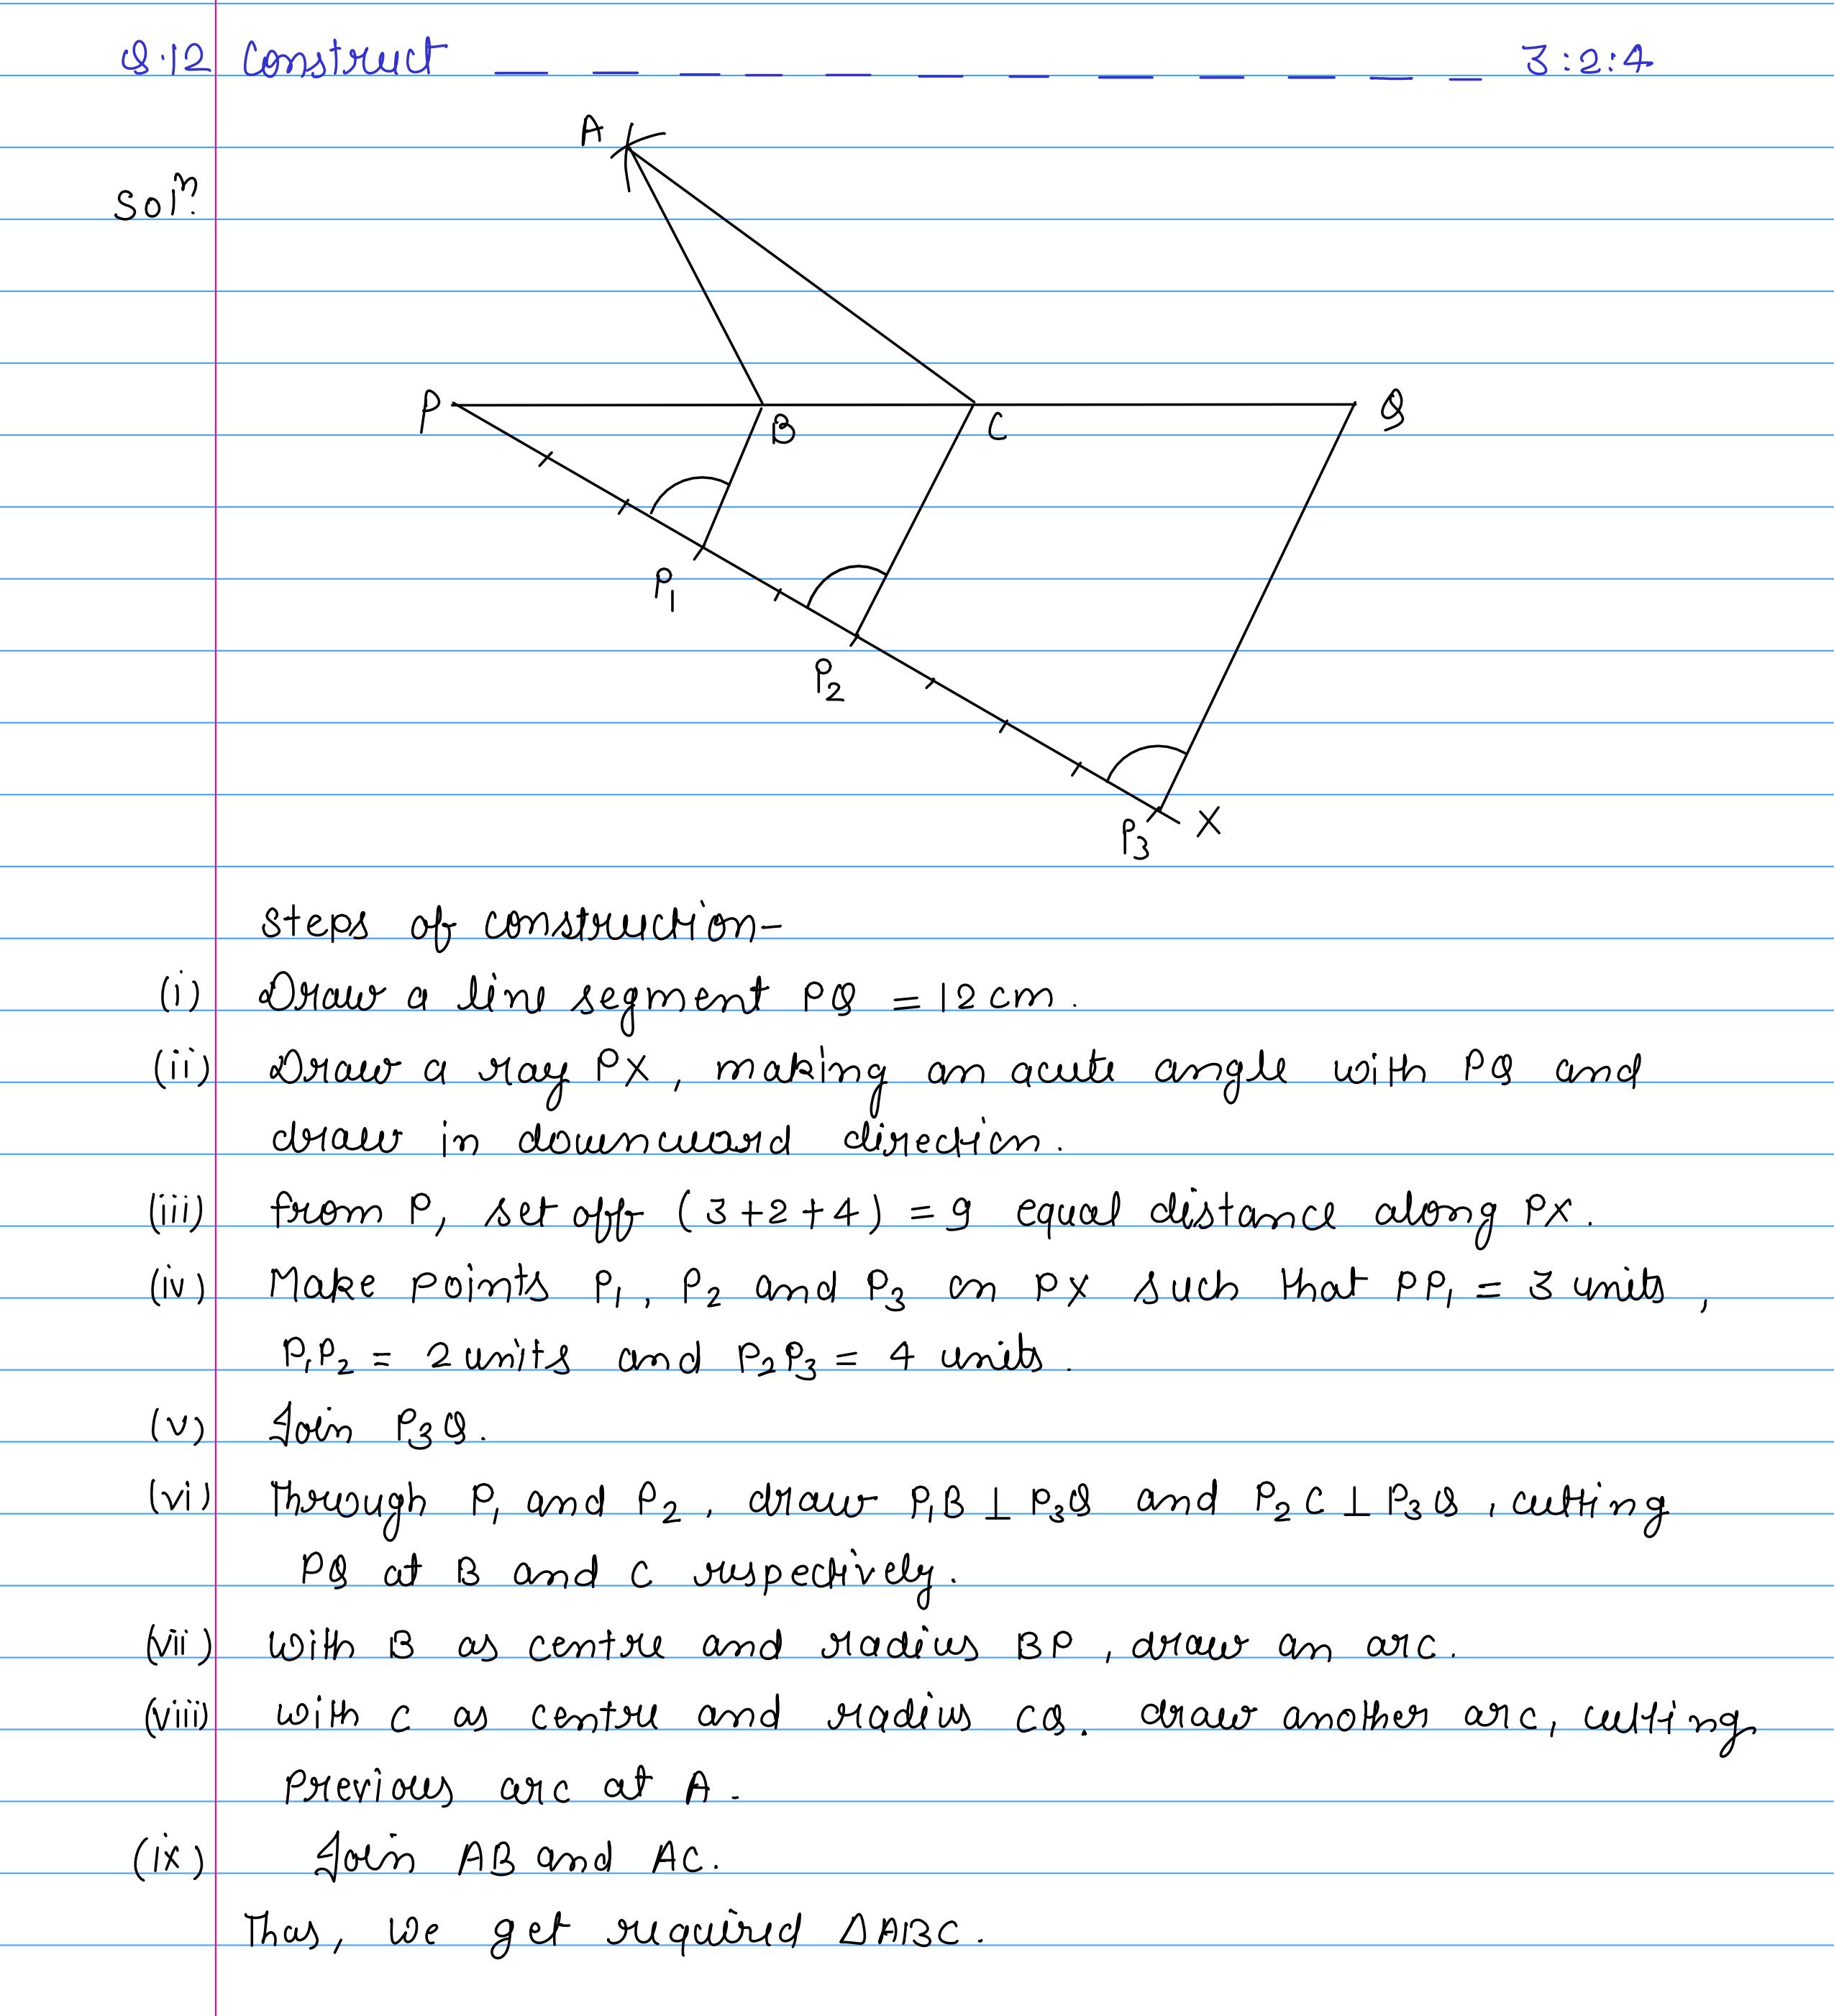 Q.12 Construct _ _ _ _ _ _ _ _ _ _ _ _ 3:2:4
A
Solⁿ.
P B C Q
P₁
P₂
P₃ X
Steps of construction-
(i) Draw a line segment PQ = 12 cm.
(ii) Draw a ray PX, making an acute angle with PQ and
draw in downward direction.
(iii) from P, set off (3+2+4) = 9 equal distance along PX.
(iv) Make points P₁, P₂ and P₃ on PX such that PP₁ = 3 units,
P₁P₂ = 2 units and P₂P₃ = 4 units.
(v) Join P₃Q.
(vi) Through P₁ and P₂, draw P₁B ⊥ P₃Q and P₂C ⊥ P₃Q, cutting
PQ at B and C respectively.
(vii) With B as centre and radius BP, draw an arc.
(viii) with C as centre and radius CQ. draw another arc, cutting
previous arc at A.
(ix) Join AB and AC.
Thas, we get required ΔABC.